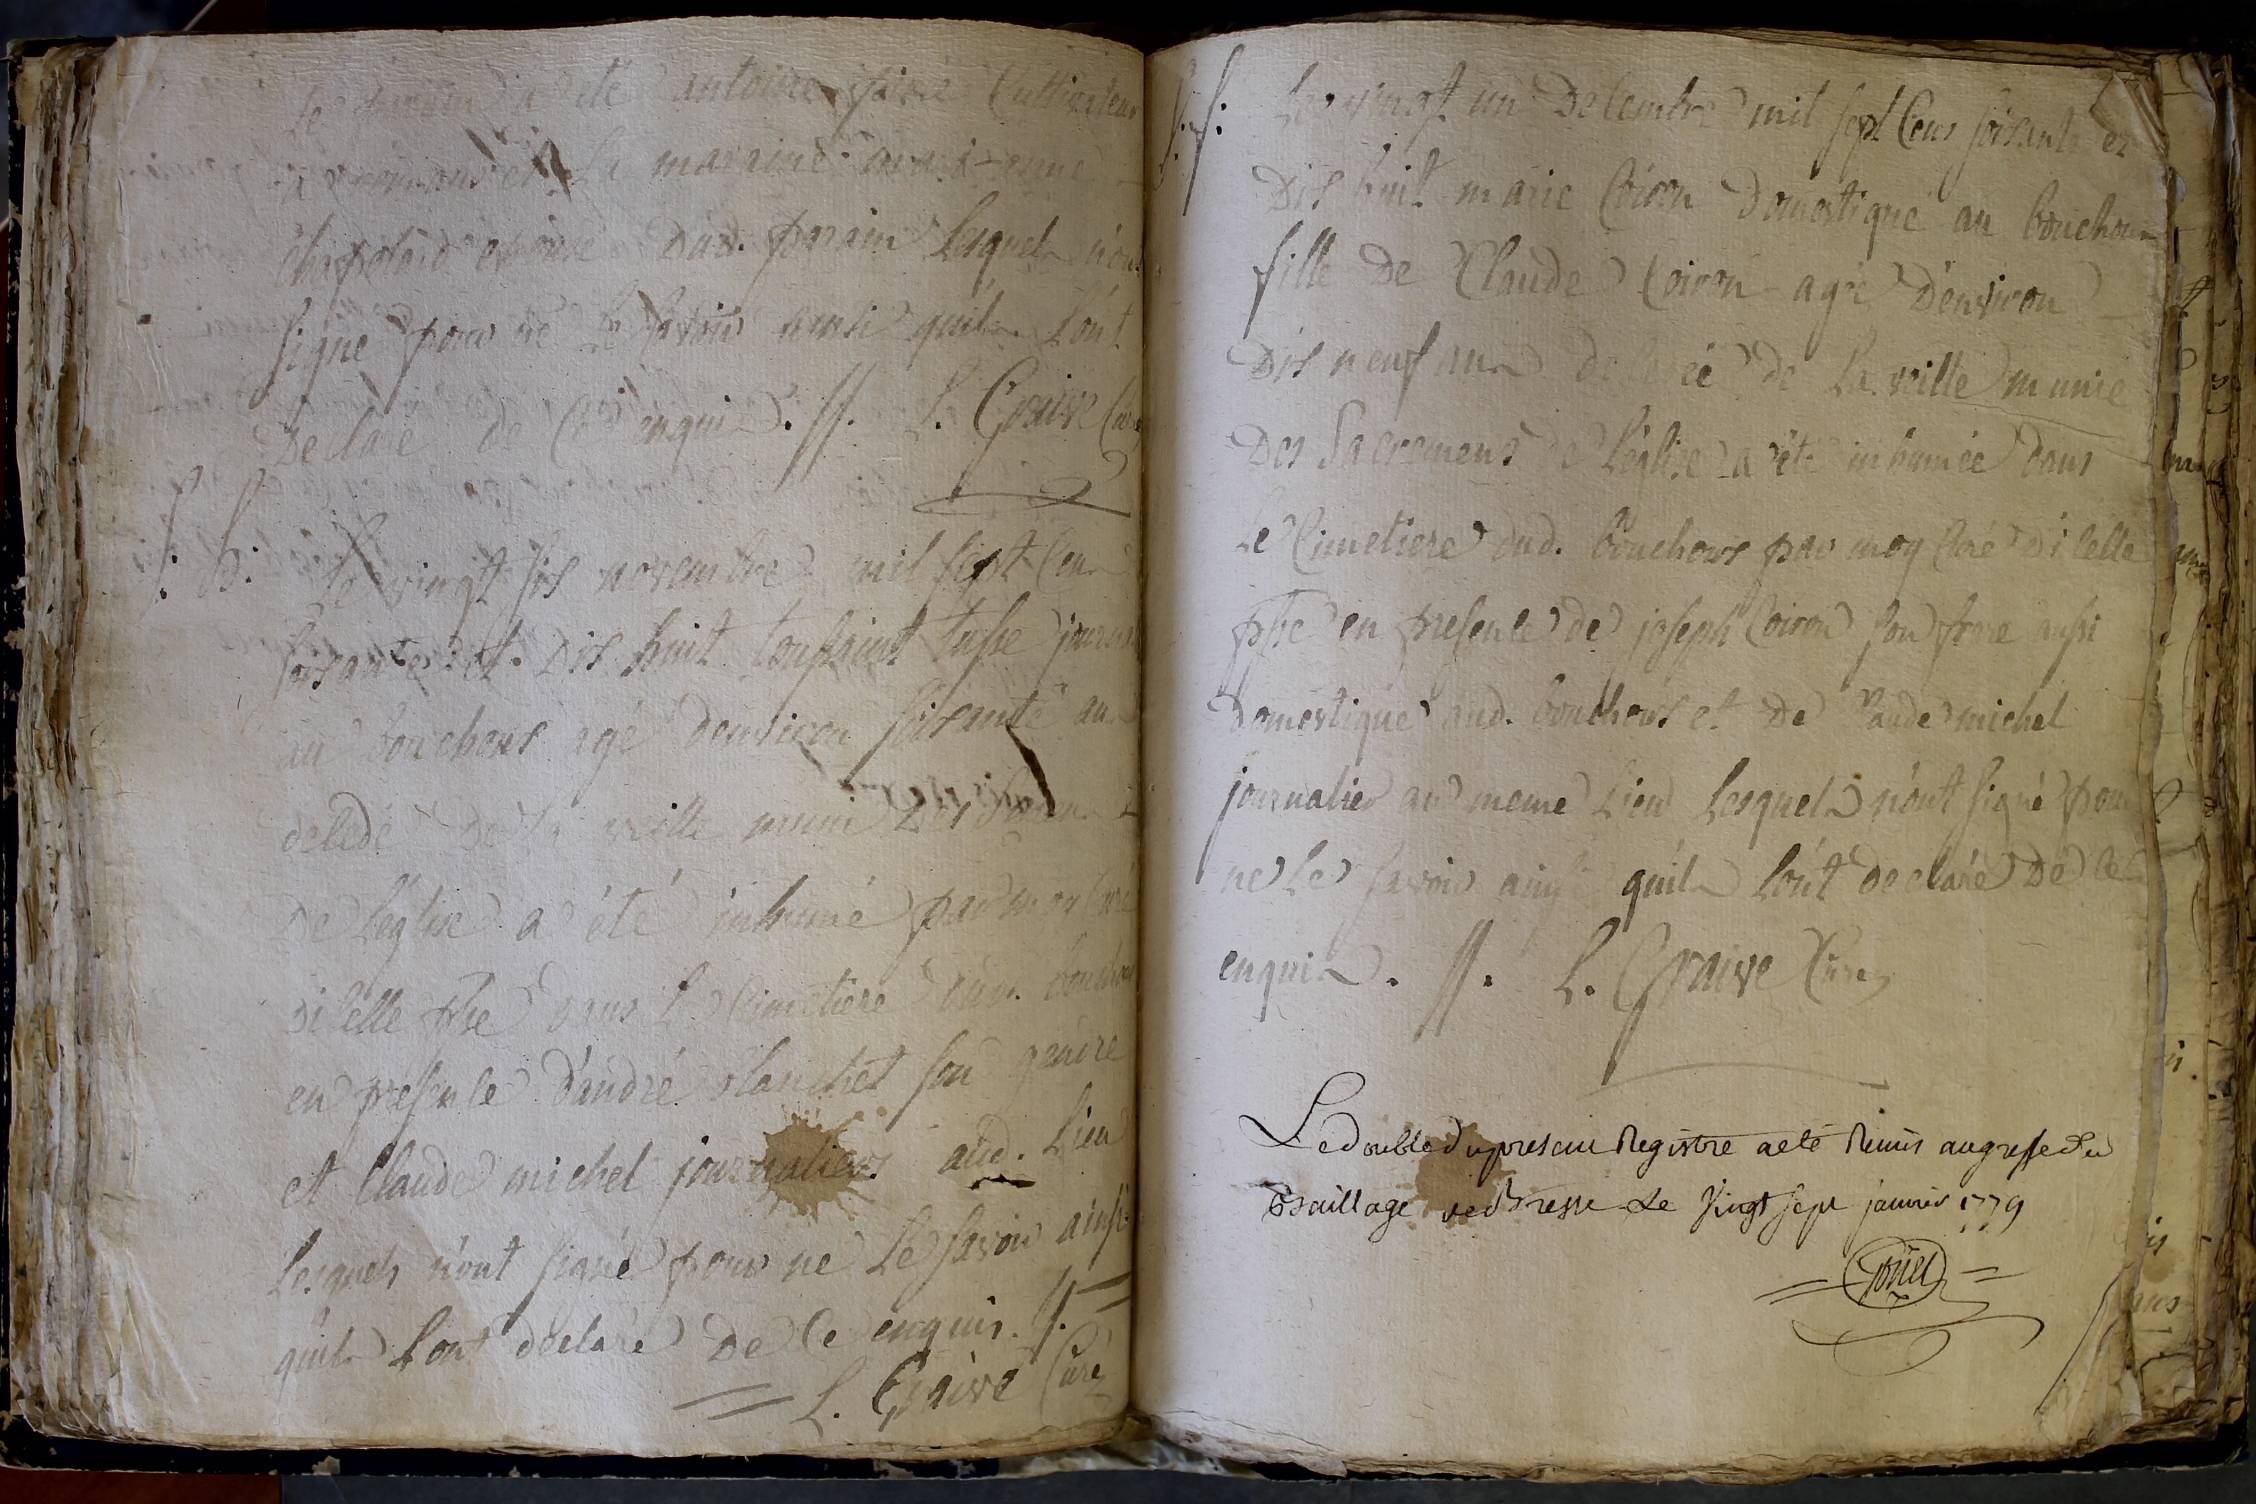 Le parain a été antoine favre Cultivateur
et la maraine
chapelard epouse dud. parain Lesquels n'ont
signé pour ne le savoir ainsi quils l'ont
declaré de ce enquis. //. L. Graive Curé
S. B. Le vingt six novembre mil sept Cens
soisante et dis huit toussaint tusse journalier
au bouchoux agé denviron soisante ans
decedé de la veille muni des Sacremens
De Léglise a été inhumé par moy Curé
Dicelle pbre dans Le Cimetiere dud. bouchoux
en presence d'andré blanchet son gendre
et Claude michel journaliers aud. Lieu
Lesquels n'ont signé pour ne Le savoir ainsi
quils Lont déclaré De Ce enquis. //.
L. Graive Curé
S. f. Le vingt un Decembre mil sept Cens soisante et
Dis huit marie Coiron Domestique au bouchoux
fille De Claude Coiron agée D'environ
Dis neuf ans decedée de La veille munie
Des Sacremens de L'église a été inhumée dans
Le Cimetiere dud. bouchoux par moy Curé Dicelle
pbre en presence de joseph Coiron son frere aussi
Domestique aud. bouchoux et De Claude michel
journalier au meme Lieu Lesquels n'ont signé pour
ne Le savoir ainsi quils Lont declaré De ce
enquis. //. L. Graive Curé
Le double du present Registre a eté Remis au greffe du
Baillage de Bresse Le Vingt sept janvier 1779